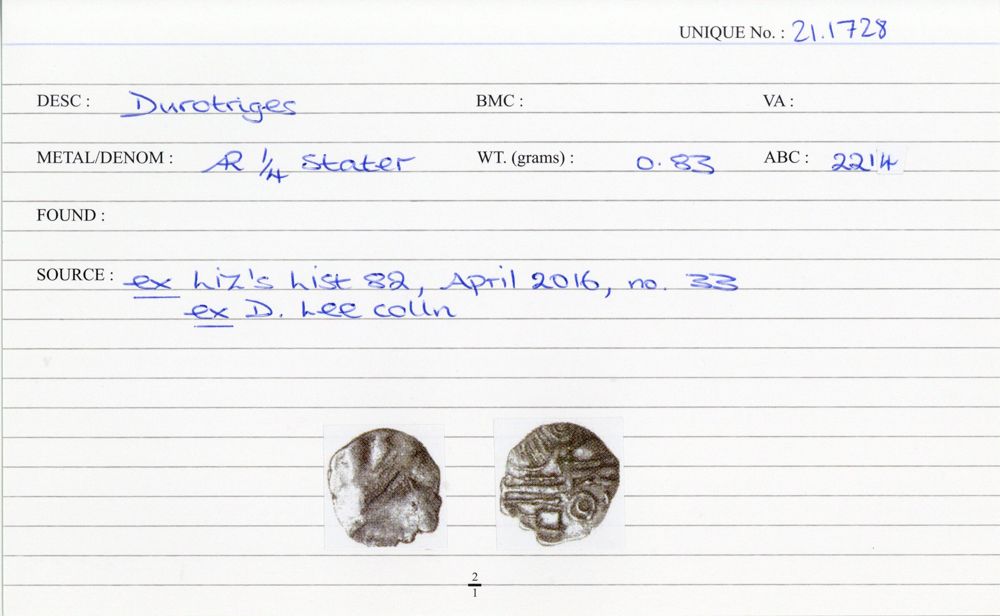 UNIQUE No. : 21.1728
DESC : Durotriges BMC : VA :
METAL/DENOM : AR 1/4 Stater WT. (grams) : 0.83 ABC : 2214
FOUND :
SOURCE : ex Liz's List 82, April 2016, no. 33
ex D. Lee colln
2
1